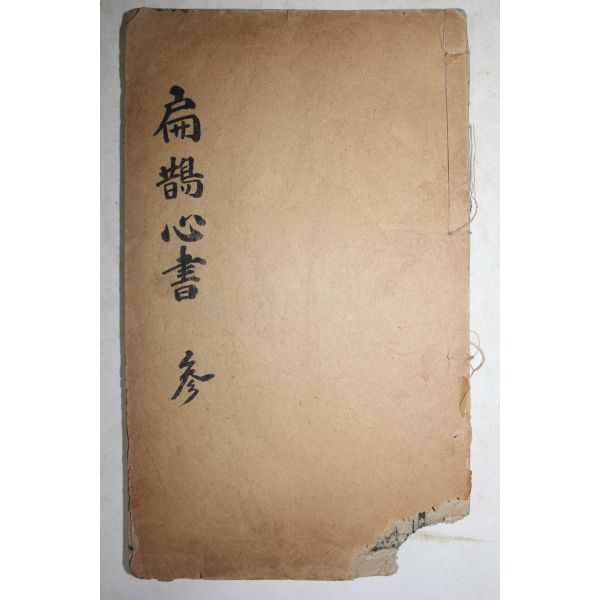 扁鵲心書 參